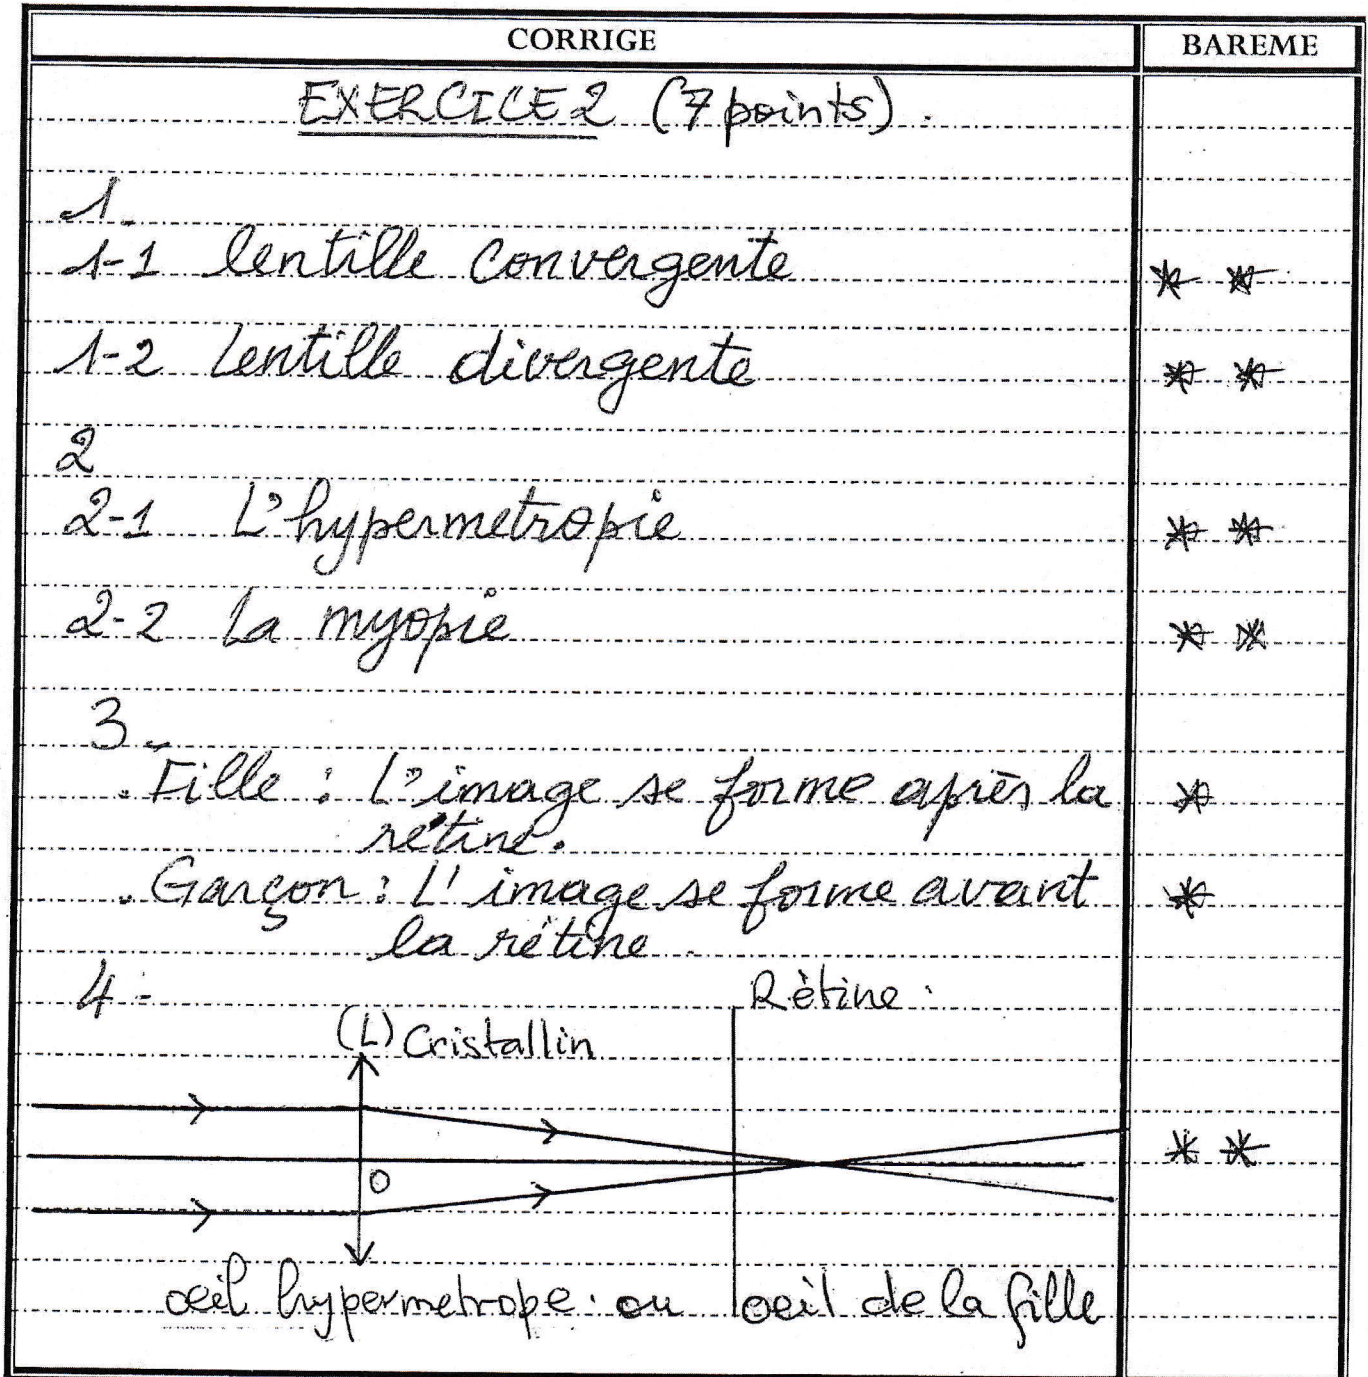 CORRIGE
BAREME
EXERCICE 2 (7 points).
1.
1-1 lentille convergente
* *
1-2 lentille divergente
* *
2
2-1 L'hypermetropie
* *
2-2 La myopie
* *
3-
. Fille : L'image se forme après la
*
rétine.
. Garçon : L'image se forme avant
*
la rétine.
4-
Rètine.
(L) Cristallin
* *
O
oeil hypermetrope. ou oeil de la fille